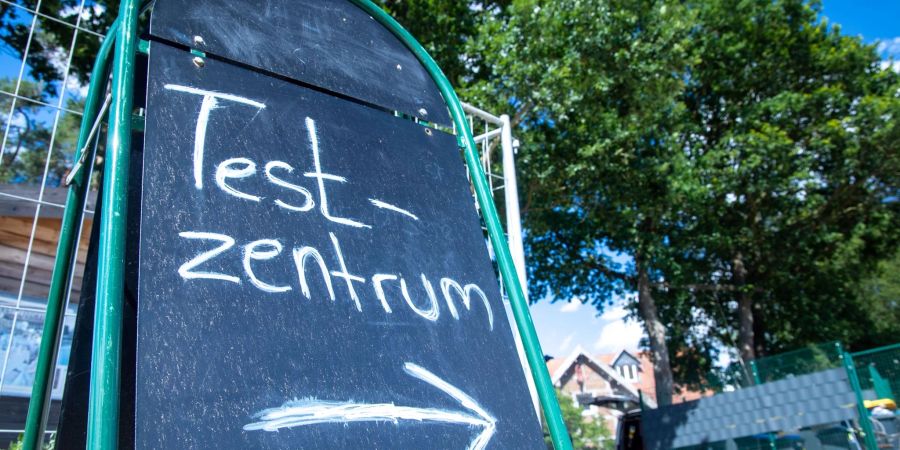 Test-
zentrum